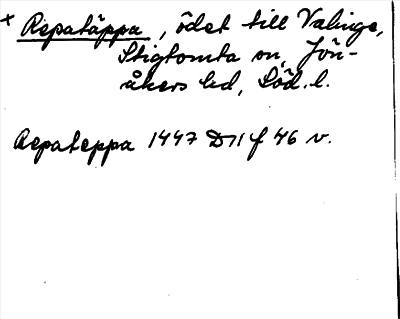 x Repatäppa, ödet till Valinge,
Stigtomta sn, Jön-
åkers hd, Söd. l.
Repateppa 1447 D 11 f 46 v.